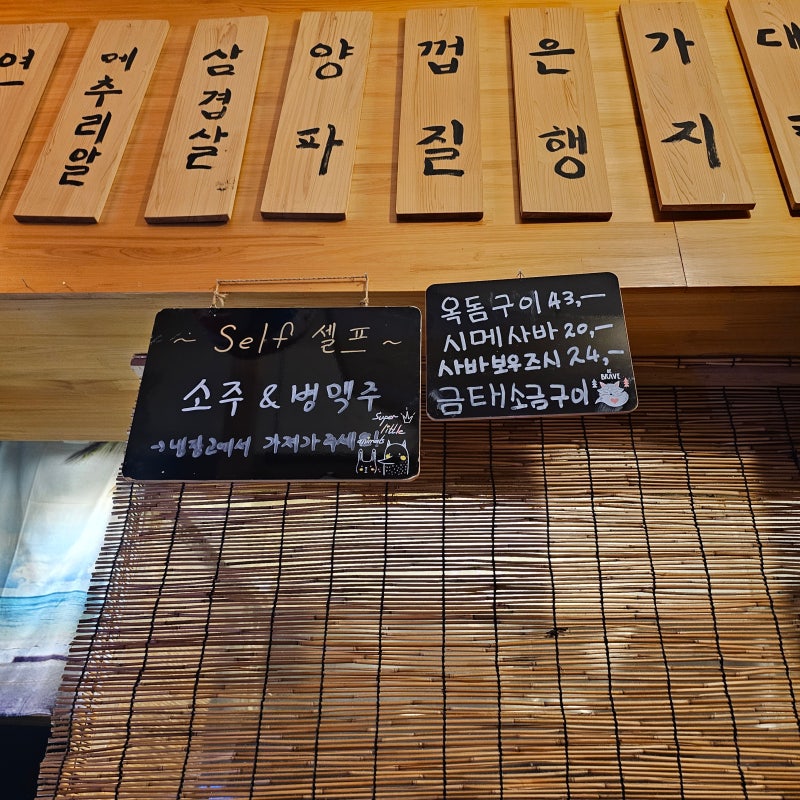 연
메추리알
삼겹살
양파
껍질
은행
가지
대
~ Self 셀프 ~
소주 & 병맥주
→ 냉장고에서 가져가주세요
super
little
animals
옥돔구이 43,-
시메사바 20,-
사바보우즈시 24,-
금태소금구이
BE
BRAVE